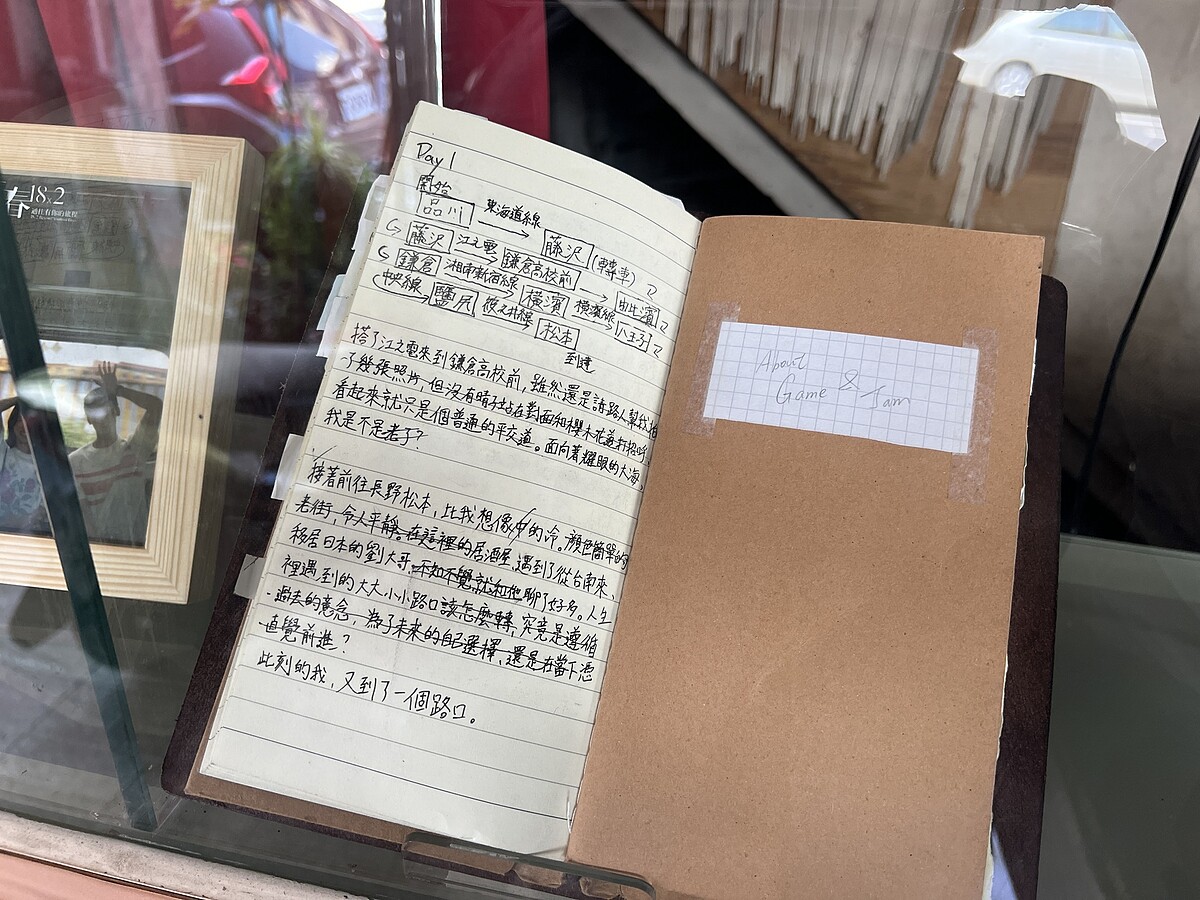 春18×2
通往有你的旅程
Day 1
開始
品川 東海道線 → 藤沢 (轉車)
藤沢 江之電 → 鎌倉高校前 → 由比濱
鎌倉 湘南新宿線 → 橫濱 橫濱線 → 八王子
中央線 → 鹽尻 篠之井線 → 松本
到達
搭了江之電來到鎌倉高校前，雖然還是請路人幫我拍
了幾張照片，但沒有晴子站在對面和櫻木花道打招呼，
看起來就只是個普通的平交道。面向著耀眼的大海
我是不是老了？
接著前往長野松本，比我想像中的冷。顏色簡單的
老街，令人平靜。在這裡的居酒屋，遇到了從台南來、
移居日本的劉大哥，不知不覺就和他聊了好多。人生
裡遇到的大大小小路口該怎麼轉，究竟是遵循
過去的意念，為了未來的自己選擇，還是在當下憑
直覺前進？
此刻的我，又到了一個路口。
About
Game & Jam